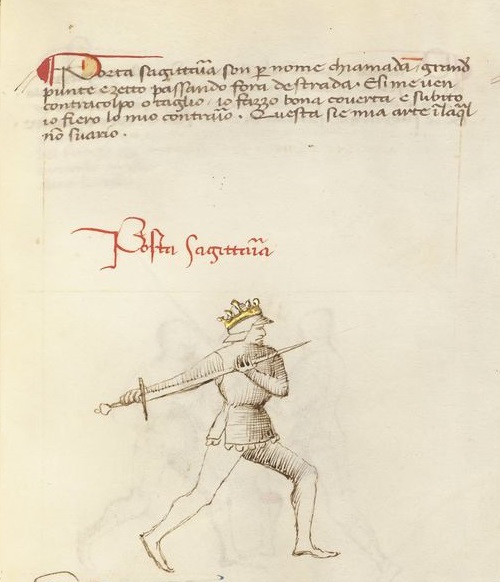 Posta sagittaria son ꝑ nome chiamada, grand
punte e zetto passando fora de strada. E si me ven
contracolpo o taglio, io fazzo bona coverta e subito
io fiero lo mio contrario. Questa sie mia arte ī laq̄l
nō suario.
Posta Sagittaria